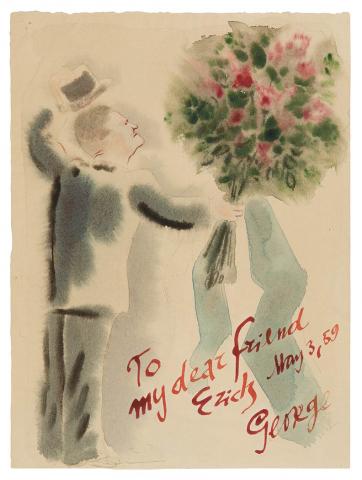 To
my dear friend
Erich May 3, 59
George